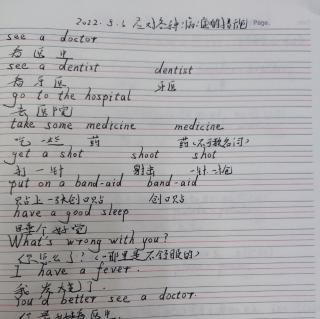 2022.5.6 应对各种病症的措施 Page.
see a doctor
看医生
see a dentist dentist
看牙医 牙医
go to the hospital
去医院
take some medicine medicine
吃一些药 药(不可数名词)
get a shot shoot shot
打一针 射击
put on a band-aid band-aid
贴上一张创口贴 创口贴
have a good sleep
睡个好觉
What's wrong with you?
你怎么了?(哪里是不舒服的)
I have a fever.
我发烧了.
You'd better see a doctor.